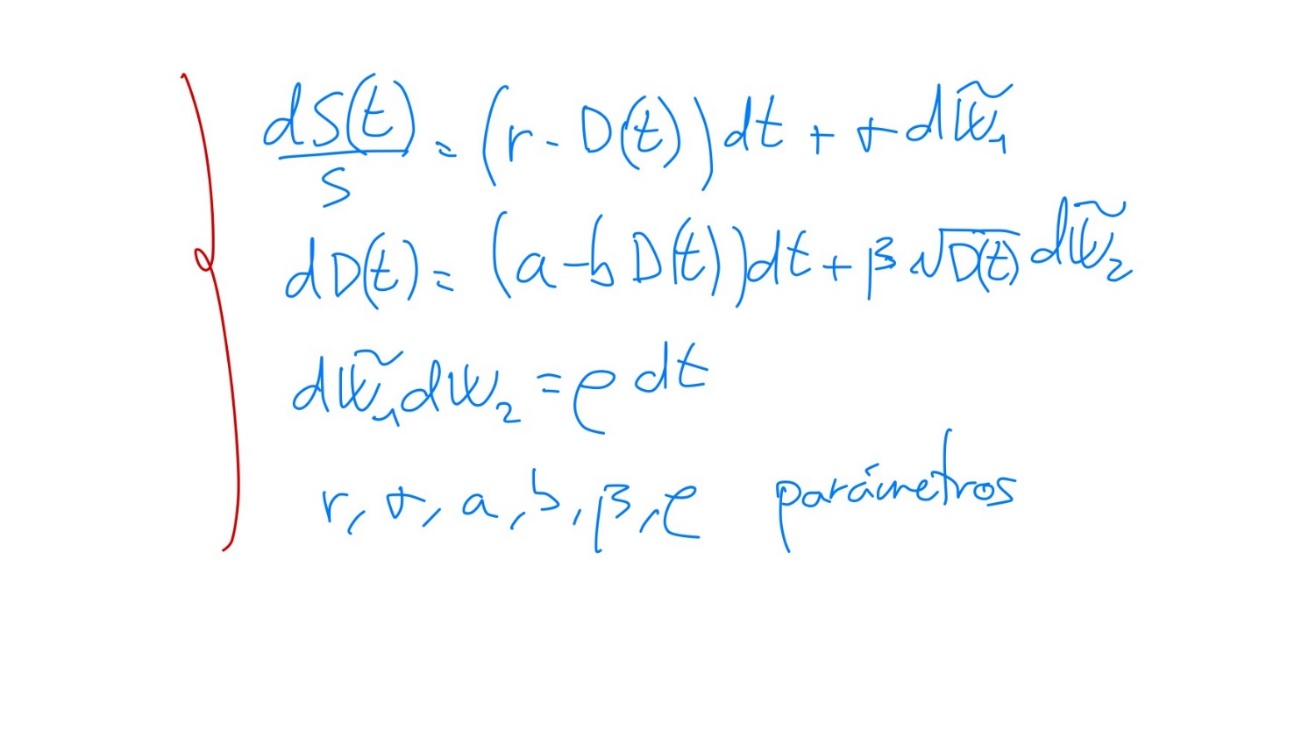 dS(t)/S = (r - D(t))dt + σ dW̃₁
dD(t) = (a - b D(t))dt + β √D(t) dW̃₂
dW̃₁dW₂ = ρ dt
r, σ, a, b, β, ρ parámetros